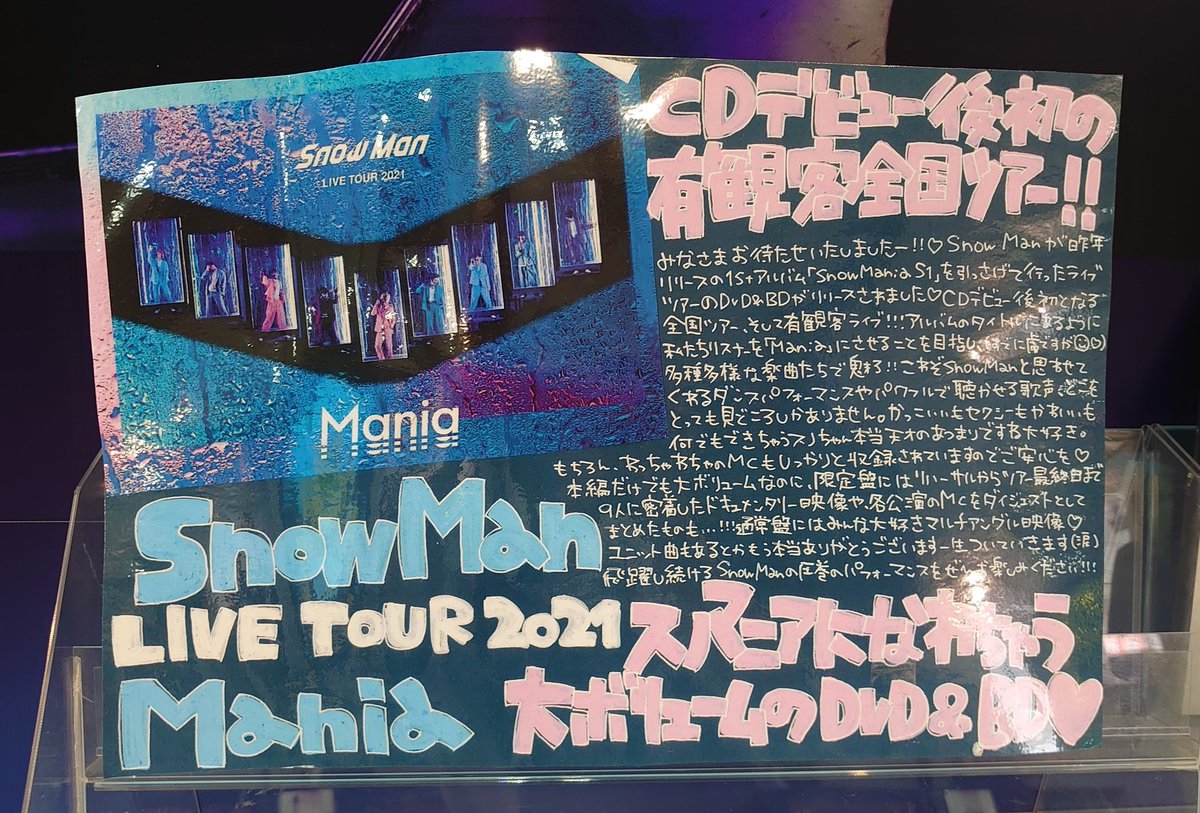 Snow Man
LIVE TOUR 2021
Mania
CDデビュー後初の
有観客全国ツアー!!
みなさまお待たせいたしましたー!!♡Snow Manが昨年
リリースの1stアルバム「Snow Mania S1」を引っさげて行ったライブ
ツアーのDVD&BDがリリースされました♡CDデビュー後初となる
全国ツアー、そして有観客ライブ!!!アルバムのタイトルにあるように
私たちリスナーを「Mania」にさせることを目指し、
多種多様な楽曲たちで魅れる!!これぞSnowManと思わせて
くれるダンスパフォーマンスやパワフルで聴かせる歌声、どこを
とっても見どころしかありません。かっこいいもセクシーもかわいいも
何でもできちゃうスノちゃん本当天才のあつまりですね大好き。
もちろん、わっちゃわちゃのMCもしっかりと収録されていますのでご安心を♡
本編だけでも大ボリュームなのに、限定盤にはリハーサルからツアー最終日まで
9人に密着したドキュメンタリー映像や、各公演のMCをダイジェストとして
まとめたものも…!!!通常盤にはみんな大好きマルチアングル映像♡
ユニット曲もあるとかもう本当ありがとうございます一生ついていきます(涙)
飛躍し続けるSnowManの圧巻のパフォーマンスをぜひお楽しみください!!!
Snow Man
LIVE TOUR 2021
Mania
スノマニアになれちゃう
大ボリュームのDVD&BD♥